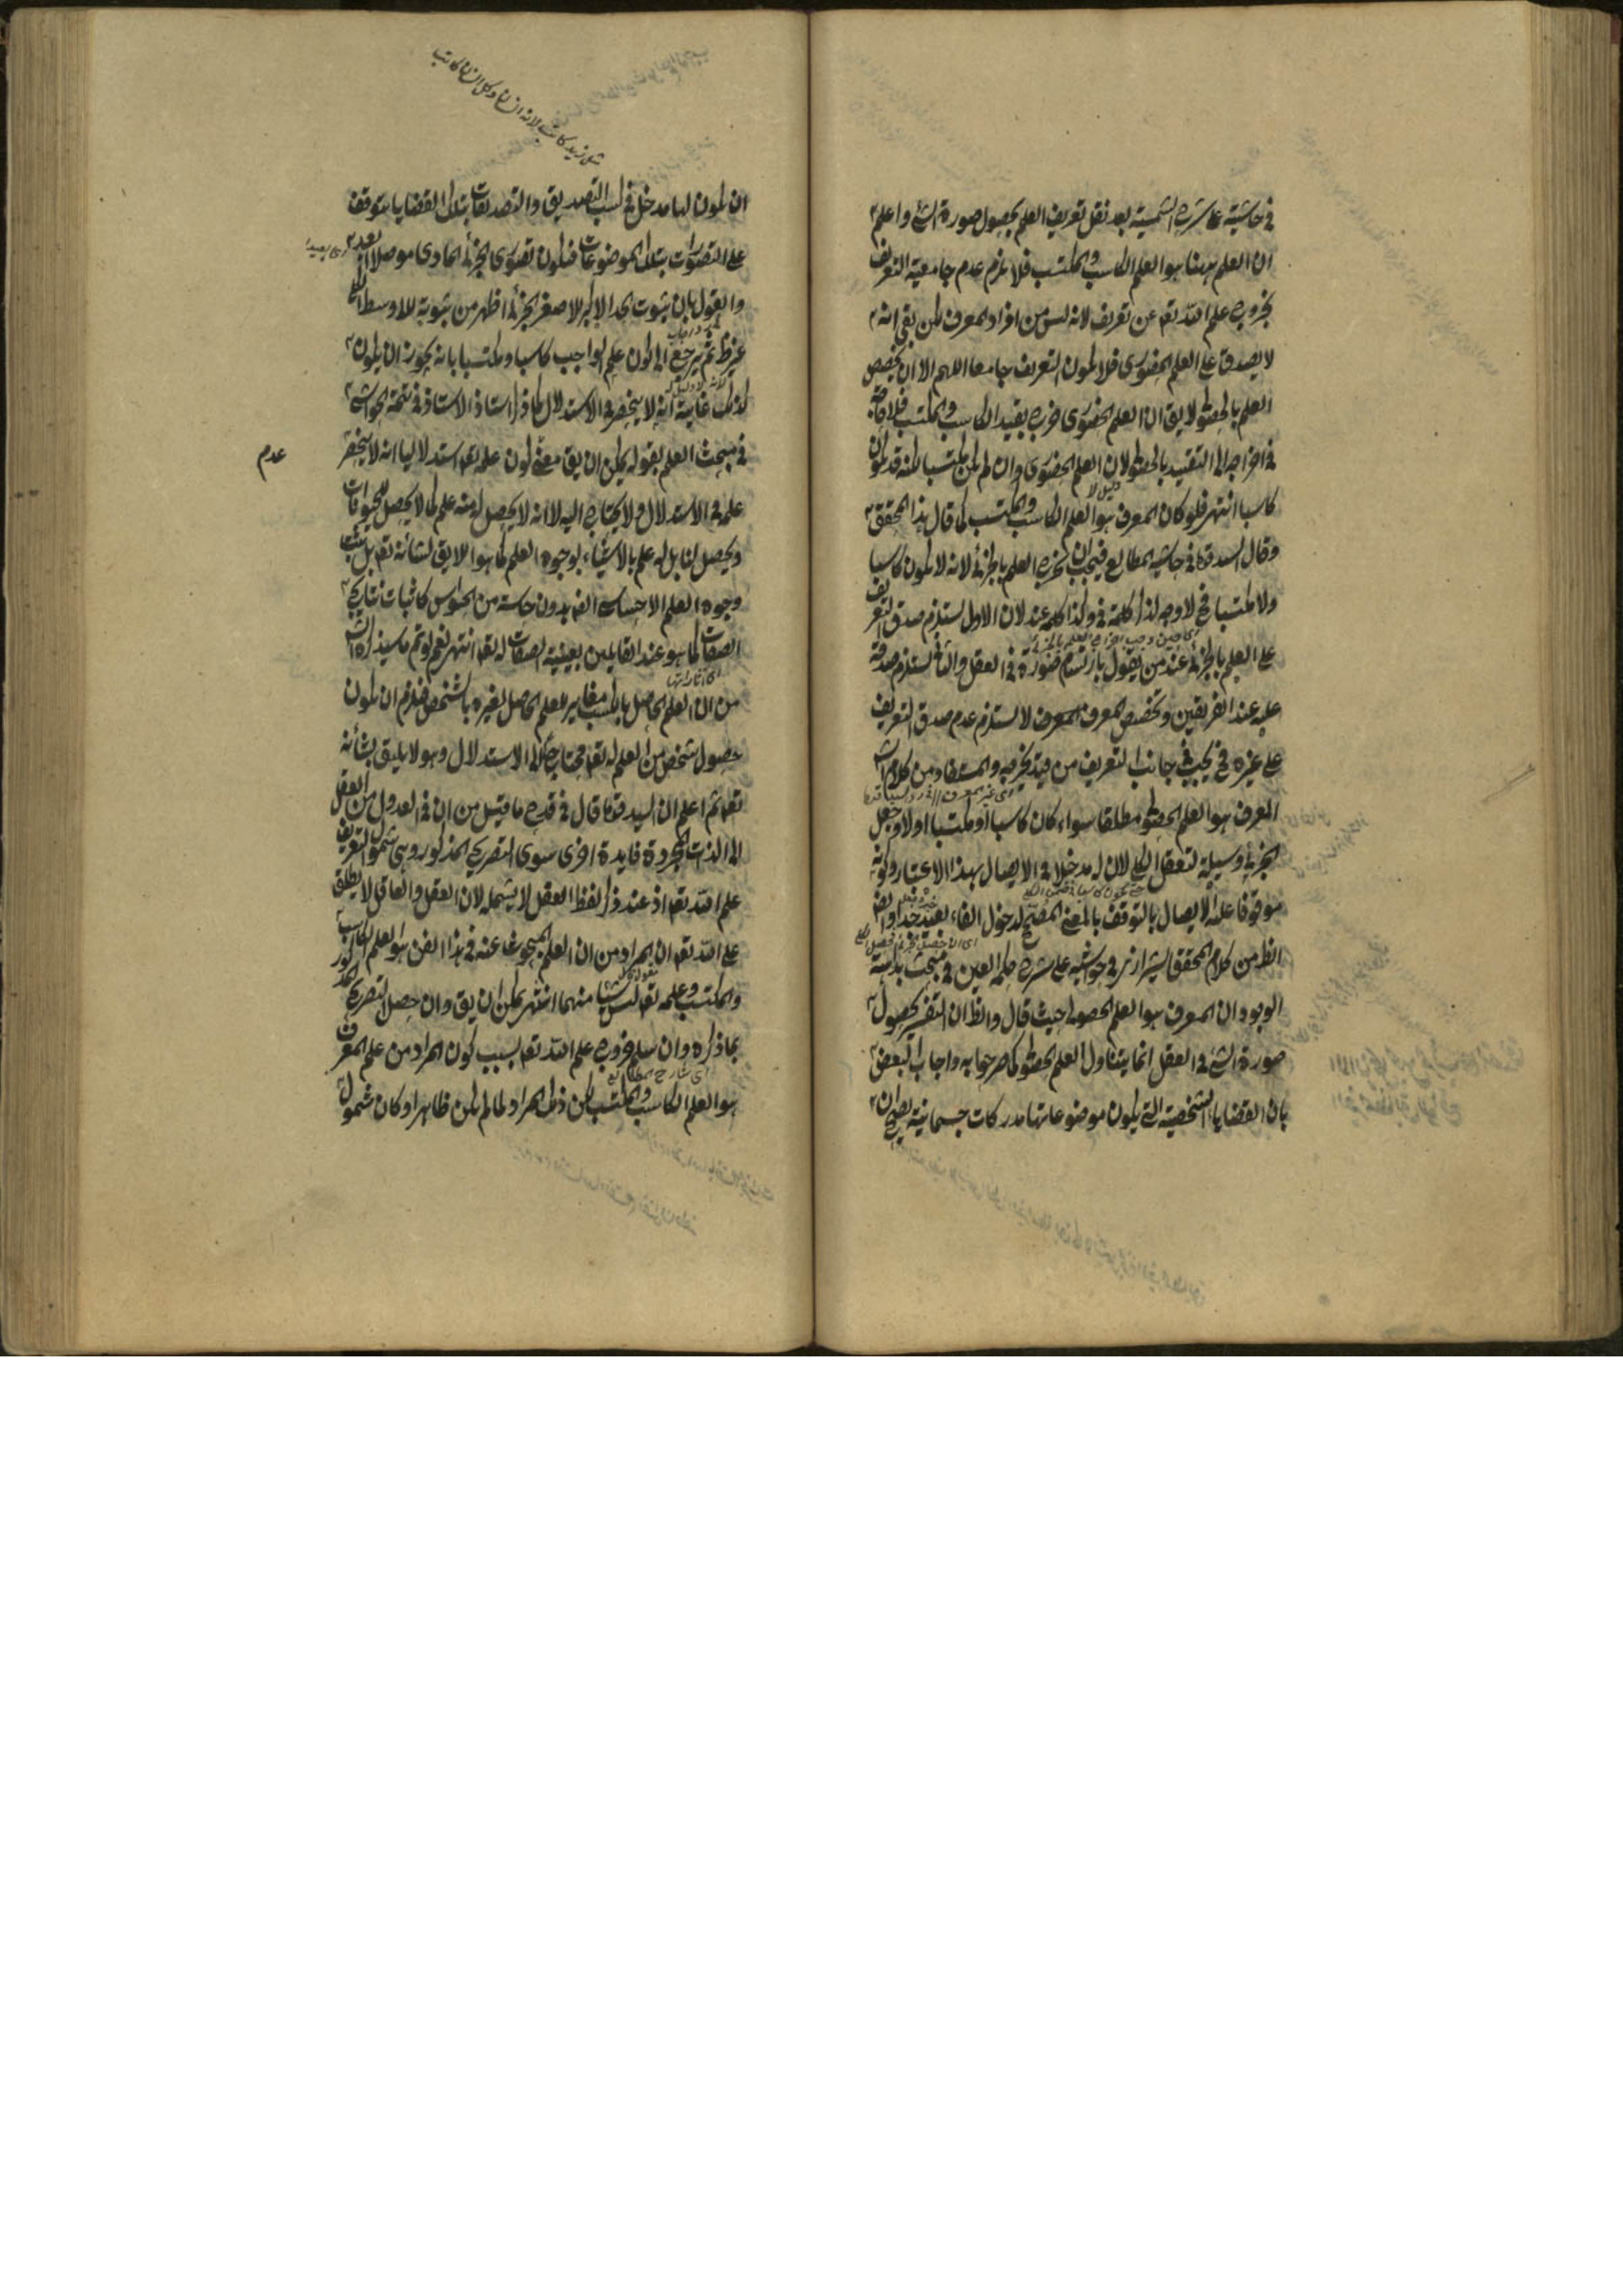 في حاشيته على شرح الشمسية بعد نقل تعريف العلم بحصول صورة الشئ واعلم
ان العلم ههنا هو العلم الكاسب والمكتسب فلا يلزم عدم جامعية التعريف
بخروج علم الله تعم عن تعريف لانه ليس من افراد المعرف لكن بقى انه
لا يصدق على العلم الحضورى فلا يكون التعريف جامعا اللهم الا ان يخصص
العلم بالحصولى لا يق ان العلم الحضورى خرج بقيد الكاسب والمكتسب فلا حاجة
في اخراجه الى التقييد بالحصولى لان العلم الحضورى وان لم يكن مكتسبا لكنه قد يكون
كاسبا انتهى فلو كان المعرف هو العلم الكاسب والمكتسب كما قال هذا المحقق
وقال السيد قده في حاشية المطالع فيجب ان يخرج العلم بالجزئى لانه لا يكون كاسبا
ولا مكتسبا فح لا وجه لذكر كلمة في وكذا كلمة عند لان الاول يستلزم صدق التعريف
على العلم بالجزئى عند من يقول بارتسام صورته في العقل والثانى يستلزم صدقه
عليه عند الفريقين وتخصيص المعرف المعرف لا يستلزم عدم صدق التعريف
على غيره فح يجب في جانب التعريف من قيد يخرجه والمستفاد من كلام الش
المعرف هو العلم الحصولى مطلقا سواء كان كاسبا او مكتسبا اولا وجعل
الجزئى وسيلة لتعقل الكلى لان له مدخلا في الايصال بهذا الاعتبار وكونه
موقوفا عليه الايصال بالتوقف بالمعنى المصحح لدخول الفاء بعيد جدا وايضا
الظ من كلام المحقق الشيرازى في حواشيه على شرح حكمة العين في مبحث بداهة
الوجود ان المعرف هو العلم الحصولى حيث قال والظ ان التفسير بحصول
صورة الشئ في العقل انما يتناول العلم الحصولى كما صرحوا به واجاب البعض
بان القضايا الشخصية التى يكون موضوعاتها مدركات جسمانية يصح ان
مثل زيد كاتب لانه انسان وكل انسان كاتب
ان يكون لها مدخل في كسب التصديق والتصديقات بتلك القضايا يتوقف
على التصورات بتلك الموضوعات فيكون تصورى الجزئى المادى موصلا ابعد
والقول بان ثبوت الحد الاكبر للاصغر الجزئى اظهر من ثبوته للاوسط الكلى
غير ظ ثم يرجع الى كون علم الواجب كاسبا ومكتسبا بانه يجوز ان يكون
كذلك غايته انه لا ينحصر في الاستدلال كما ذكر استاذ الاستاذ في تتمة الحواشى
في مبحث العلم بقوله يمكن ان يق معنى كون علمه تعم استدلاليا انه لا ينحصر
عدم
علمه في الاستدلال ولا يحتاج اليه لا انه لا يحصل له منه علم كما لا يحصل للحيوانات
ويحصل لنا بل له علم بالاشياء بوجوه العلم كما هو اللايق لشأنه تعم بل يثبت
وجوه العلم الاحساسى ايضا بدون حاسة من الحواس كاثبات نتايج
الصفات كما هو عند القايلين بعينية الصفات له تعم انتهى نعم لو تم ما سيذكره الش
من ان العلم الحاصل بالكسب مغاير للعلم الحاصل لغيره بالشخص فيلزم ان يكون
حصول شخص من العلم له تعم محتاجا الى الاستدلال وهو لا يليق بشأنه
تعم ثم اعلم ان السيد قده قال في قدح ما قيل من ان في العدول من العقل
الى الذات المجردة فايدة اخرى سوى التصريح المذكور وهى شمول التعريف
علم الله تعم اذ عند ذكر لفظ العقل لا يشمله لان العقل والعاقل لا يطلق
على الله تعم ان المراد من ان العلم المبحوث عنه في هذا الفن هو العلم الكاسب
والمكتسب وعلمه تعم ليس شيئا منهما انتهى يمكن ان يق وان حصل التصريح المذكور
بما ذكره وان سلم خروج علم الله تعم بسبب كون المراد من علم المعرف
هو العلم الكاسب والمكتسب لكن ذلك المراد لما لم يكن ظاهرا وكان شمول